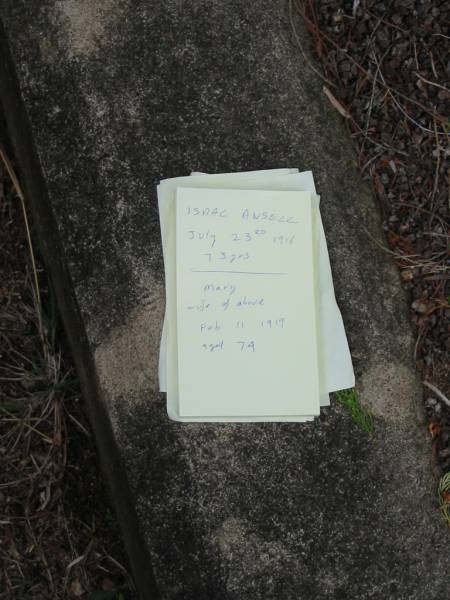 ISAAC ANSELL
July 23rd 1916
73 yrs
Mary
wife of above
Feb 11 1919
aged 74